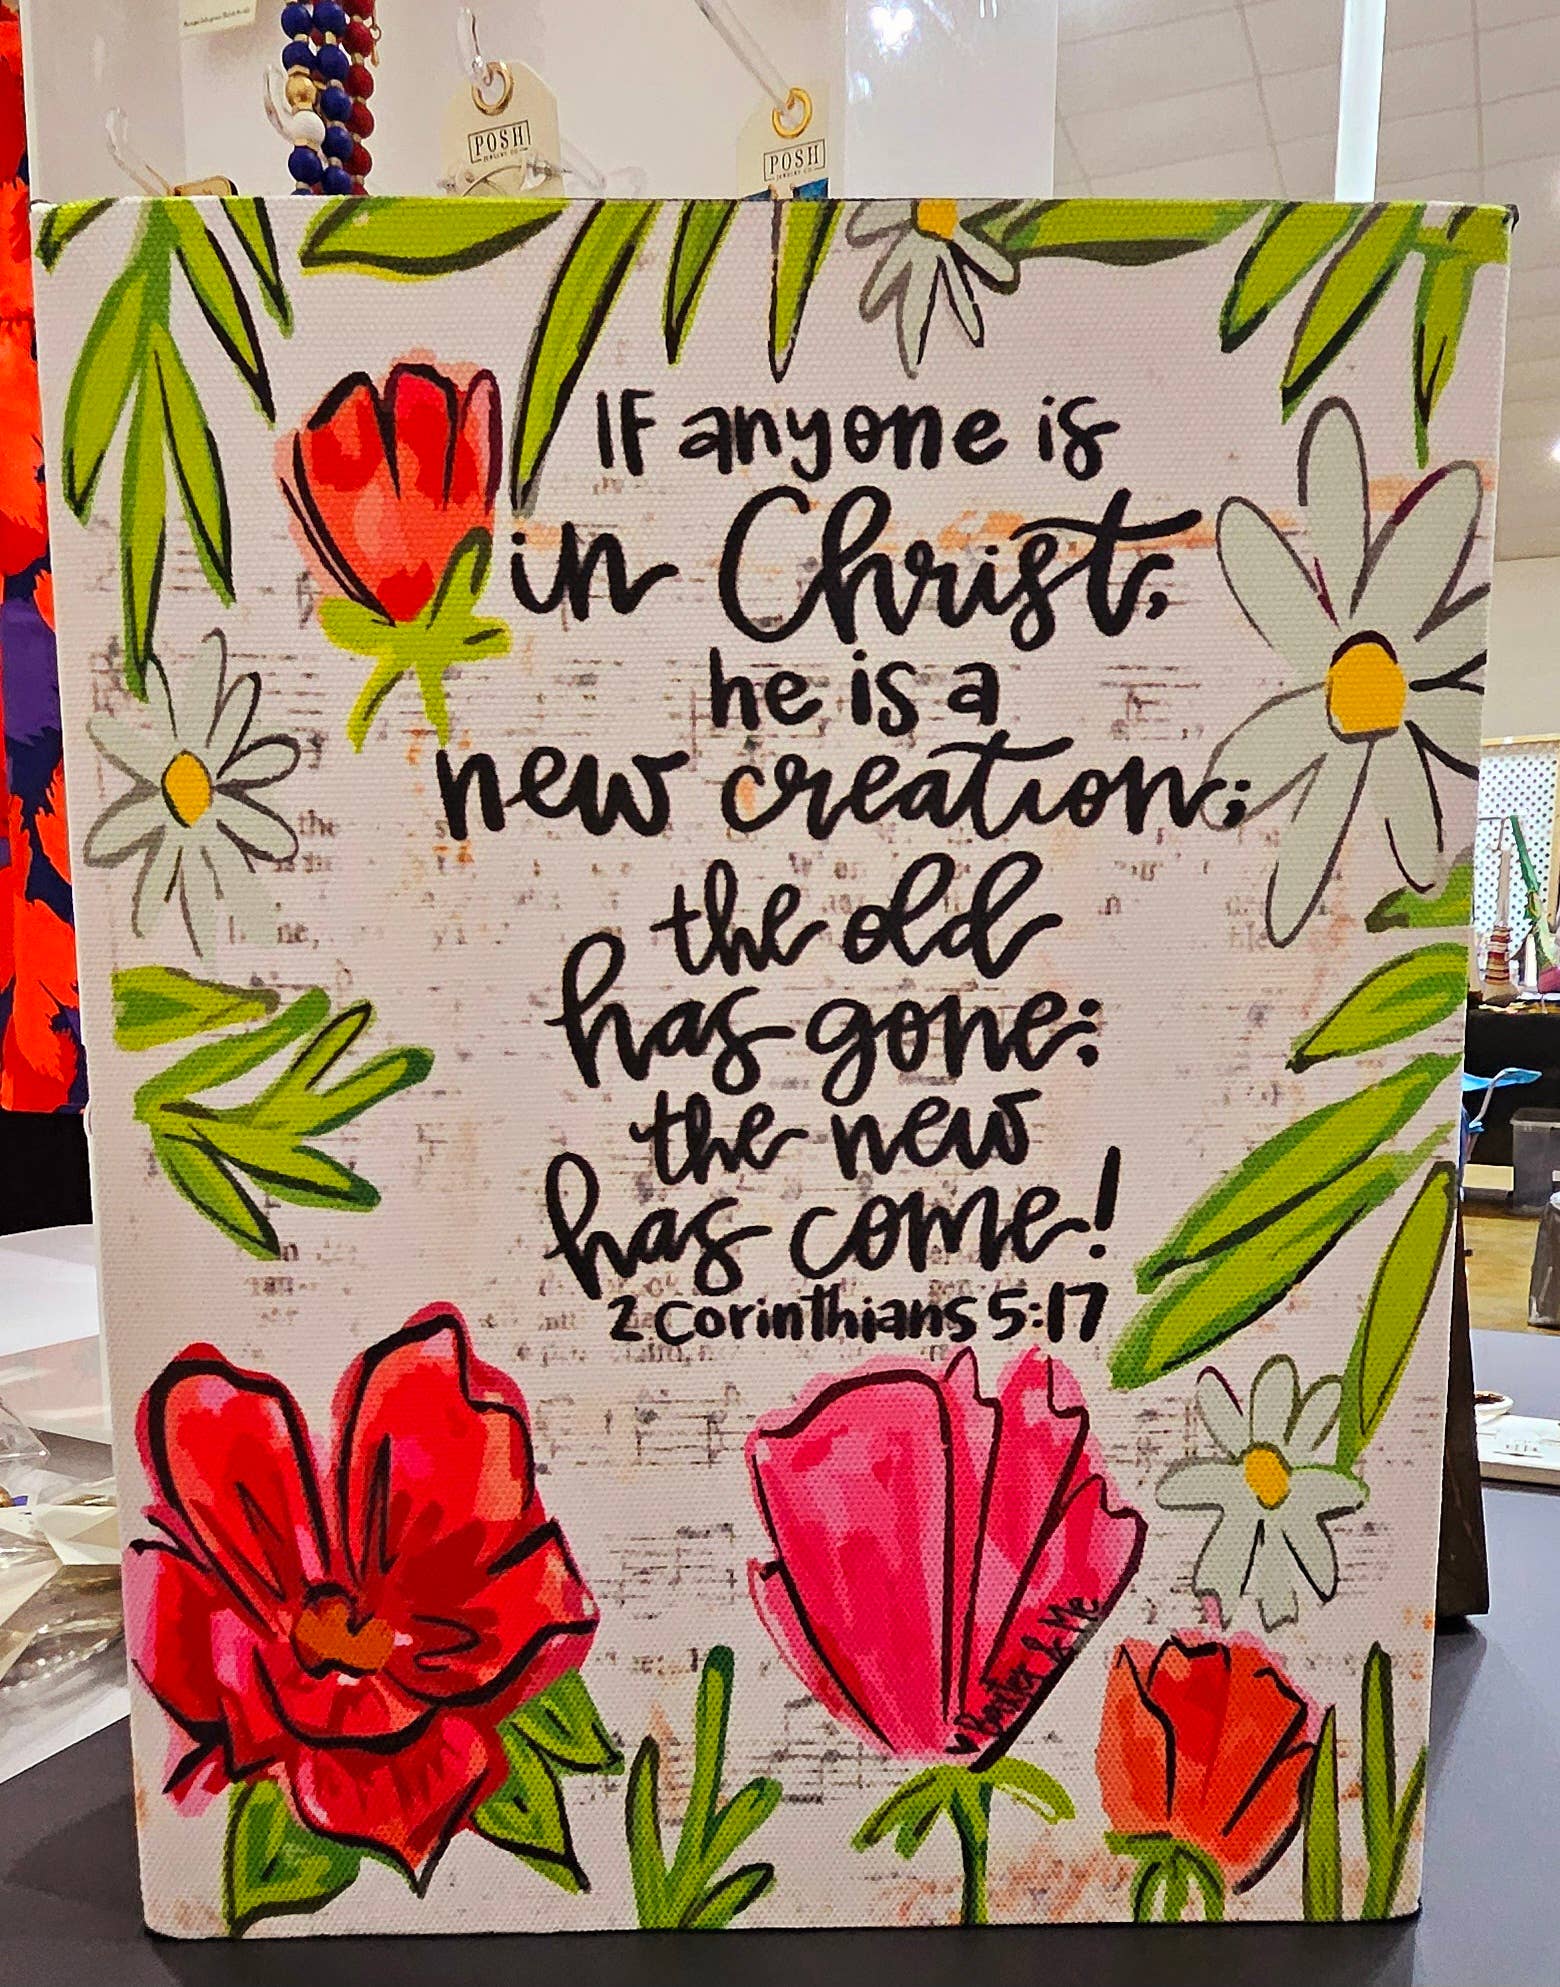 POSH
JEWELRY CO.
POSH
JEWELRY CO.
IF anyone is
in Christ,
he is a
new creation;
the old
has gone:
the new
has come!
2 Corinthians 5:17
Baxter & Me